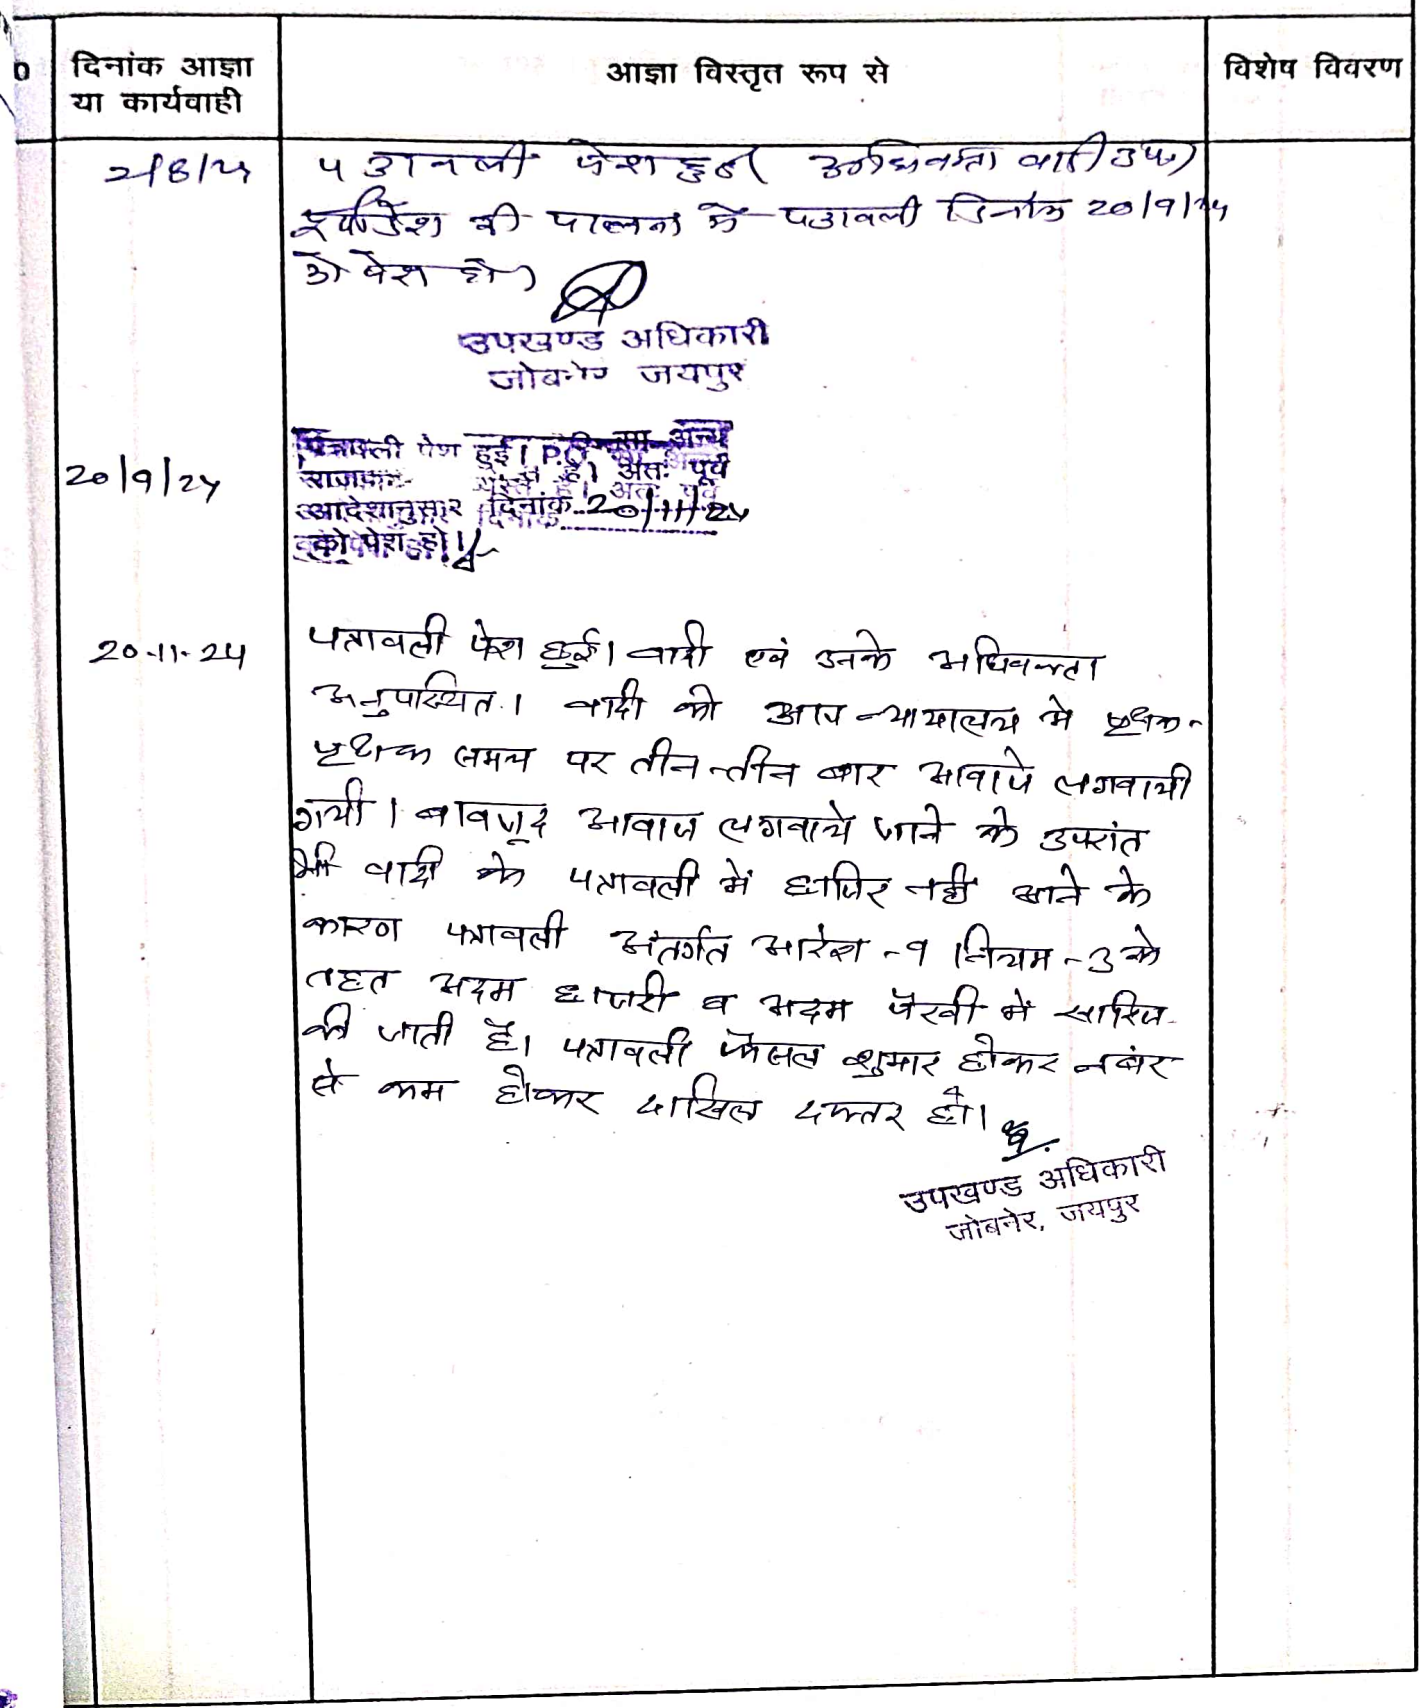 दिनांक आज्ञा
या कार्यवाही
आज्ञा विस्तृत रूप से
विशेष विवरण
2/8/24
पत्रावली पेश हुई। अधिवक्ता वादी उप।
पूर्वादेश की पालना में पत्रावली दिनांक 20/9/24
को पेश हो।
उपखण्ड अधिकारी
जोबनेर जयपुर
20/9/24
पत्रावली पेश हुई। P.O. अन्य
है। अतः पूर्व
आदेशानुसार दिनांक 20/11/24
को पेश हो।
20-11-24
पत्रावली पेश हुई। वादी एवं उनके अधिवक्ता
अनुपस्थित। वादी को आज न्यायालय मे पृथक-
पृथक समय पर तीन-तीन बार आवाजे लगवायी
गयी। बावजूद आवाज लगवाये जाने के उपरांत
भी वादी के पत्रावली में हाजिर नही आने के
कारण पत्रावली अंतर्गत आदेश-9 नियम-3 के
तहत अदम हाजरी व अदम पैरवी में खारिज
की जाती है। पत्रावली फैसल शुमार होकर नबंर
से कम होकर दाखिल दफ्तर हो।
उपखण्ड अधिकारी
जोबनेर, जयपुर